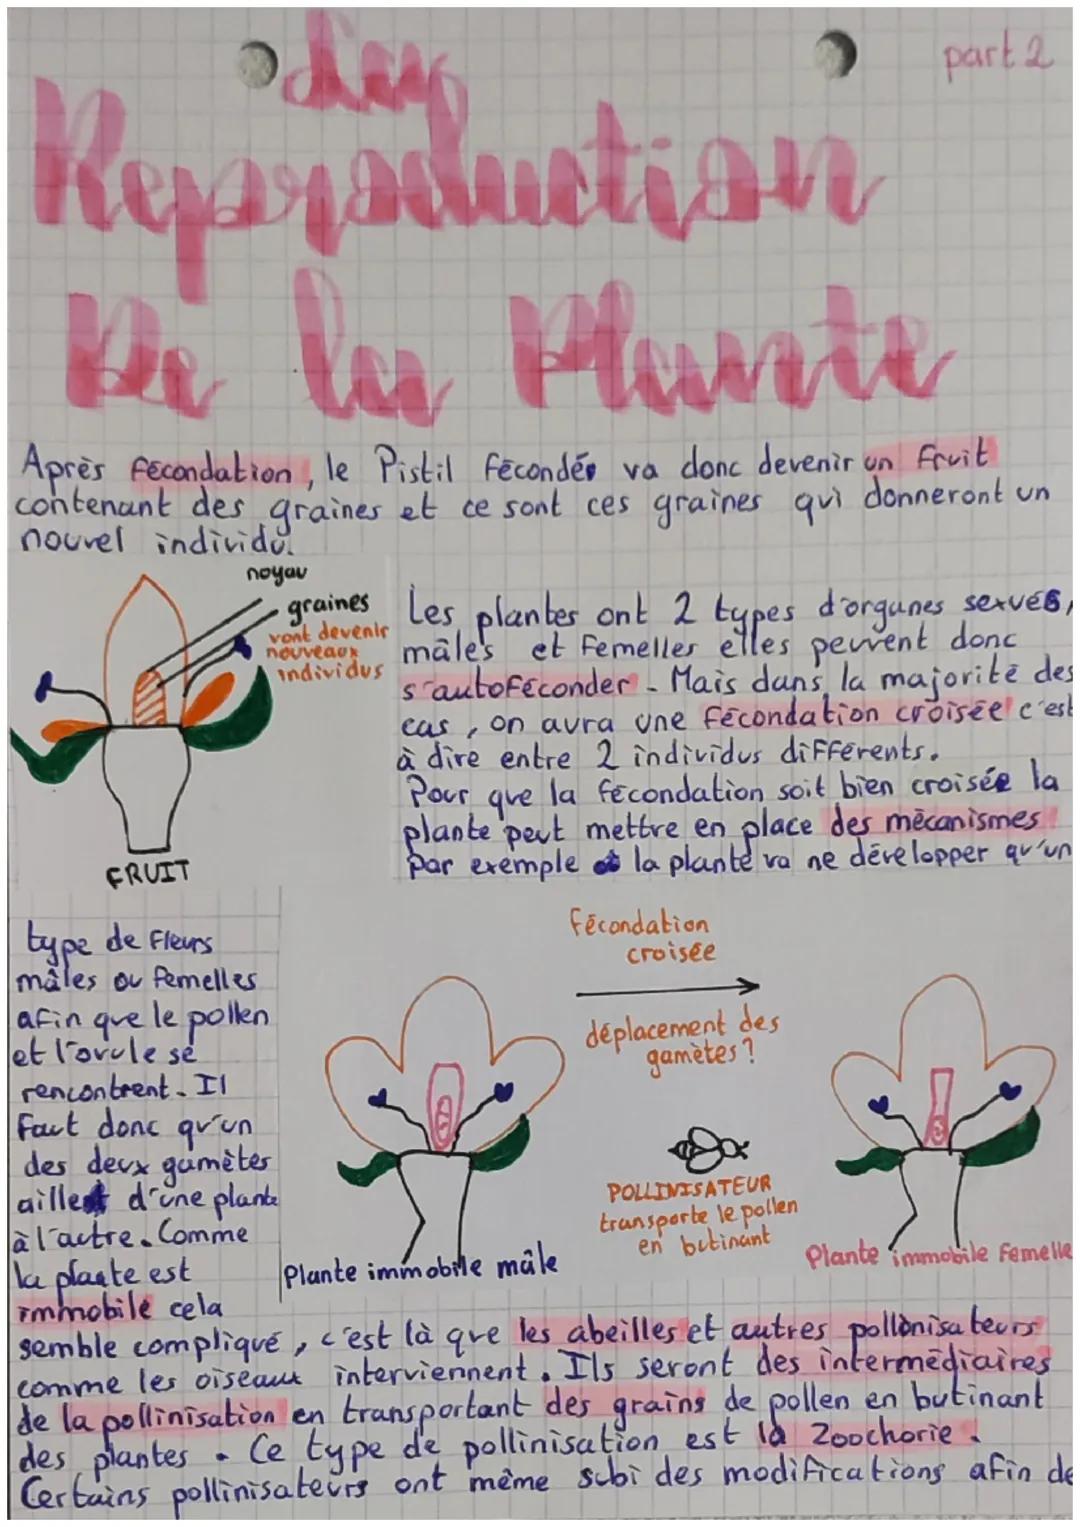 La
part 2
Reproduction
De la Plante
Après fécondation, le Pistil fécondé va donc devenir un fruit
contenant des graines et ce sont ces graines qui donneront un
nouvel individu.
noyau
graines
vont devenir
nouveaux
individus
FRUIT
Les plantes ont 2 types d'organes sexués,
mâles et femelles elles peuvent donc
s'autoféconder. Mais dans la majorité des
cas, on aura une fécondation croisée c'est
à dire entre 2 individus différents.
Pour que la fécondation soit bien croisée la
plante peut mettre en place des mécanismes
par exemple la plante va ne développer qu'un
type de fleurs
mâles ou femelles
afin que le pollen
et l'ovule se
rencontrent. Il
faut donc qu'un
des deux gamètes
aillent d'une plante
à l'autre. Comme
la plante est
immobile cela
fécondation
croisée
déplacement des
gamètes?
POLLINISATEUR
transporte le pollen
en butinant
Plante immobile mâle
Plante immobile femelle
semble compliqué, c'est là que les abeilles et autres pollinisateurs
comme les oiseaux interviennent. Ils seront des intermédiaires
de la pollinisation en transportant des grains de pollen en butinant
des plantes. Ce type de pollinisation est la Zoochorie.
Certains pollinisateurs ont même subi des modifications afin de